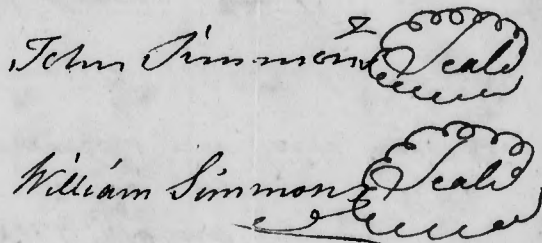 John Simmons Seal
William Simmons Seal